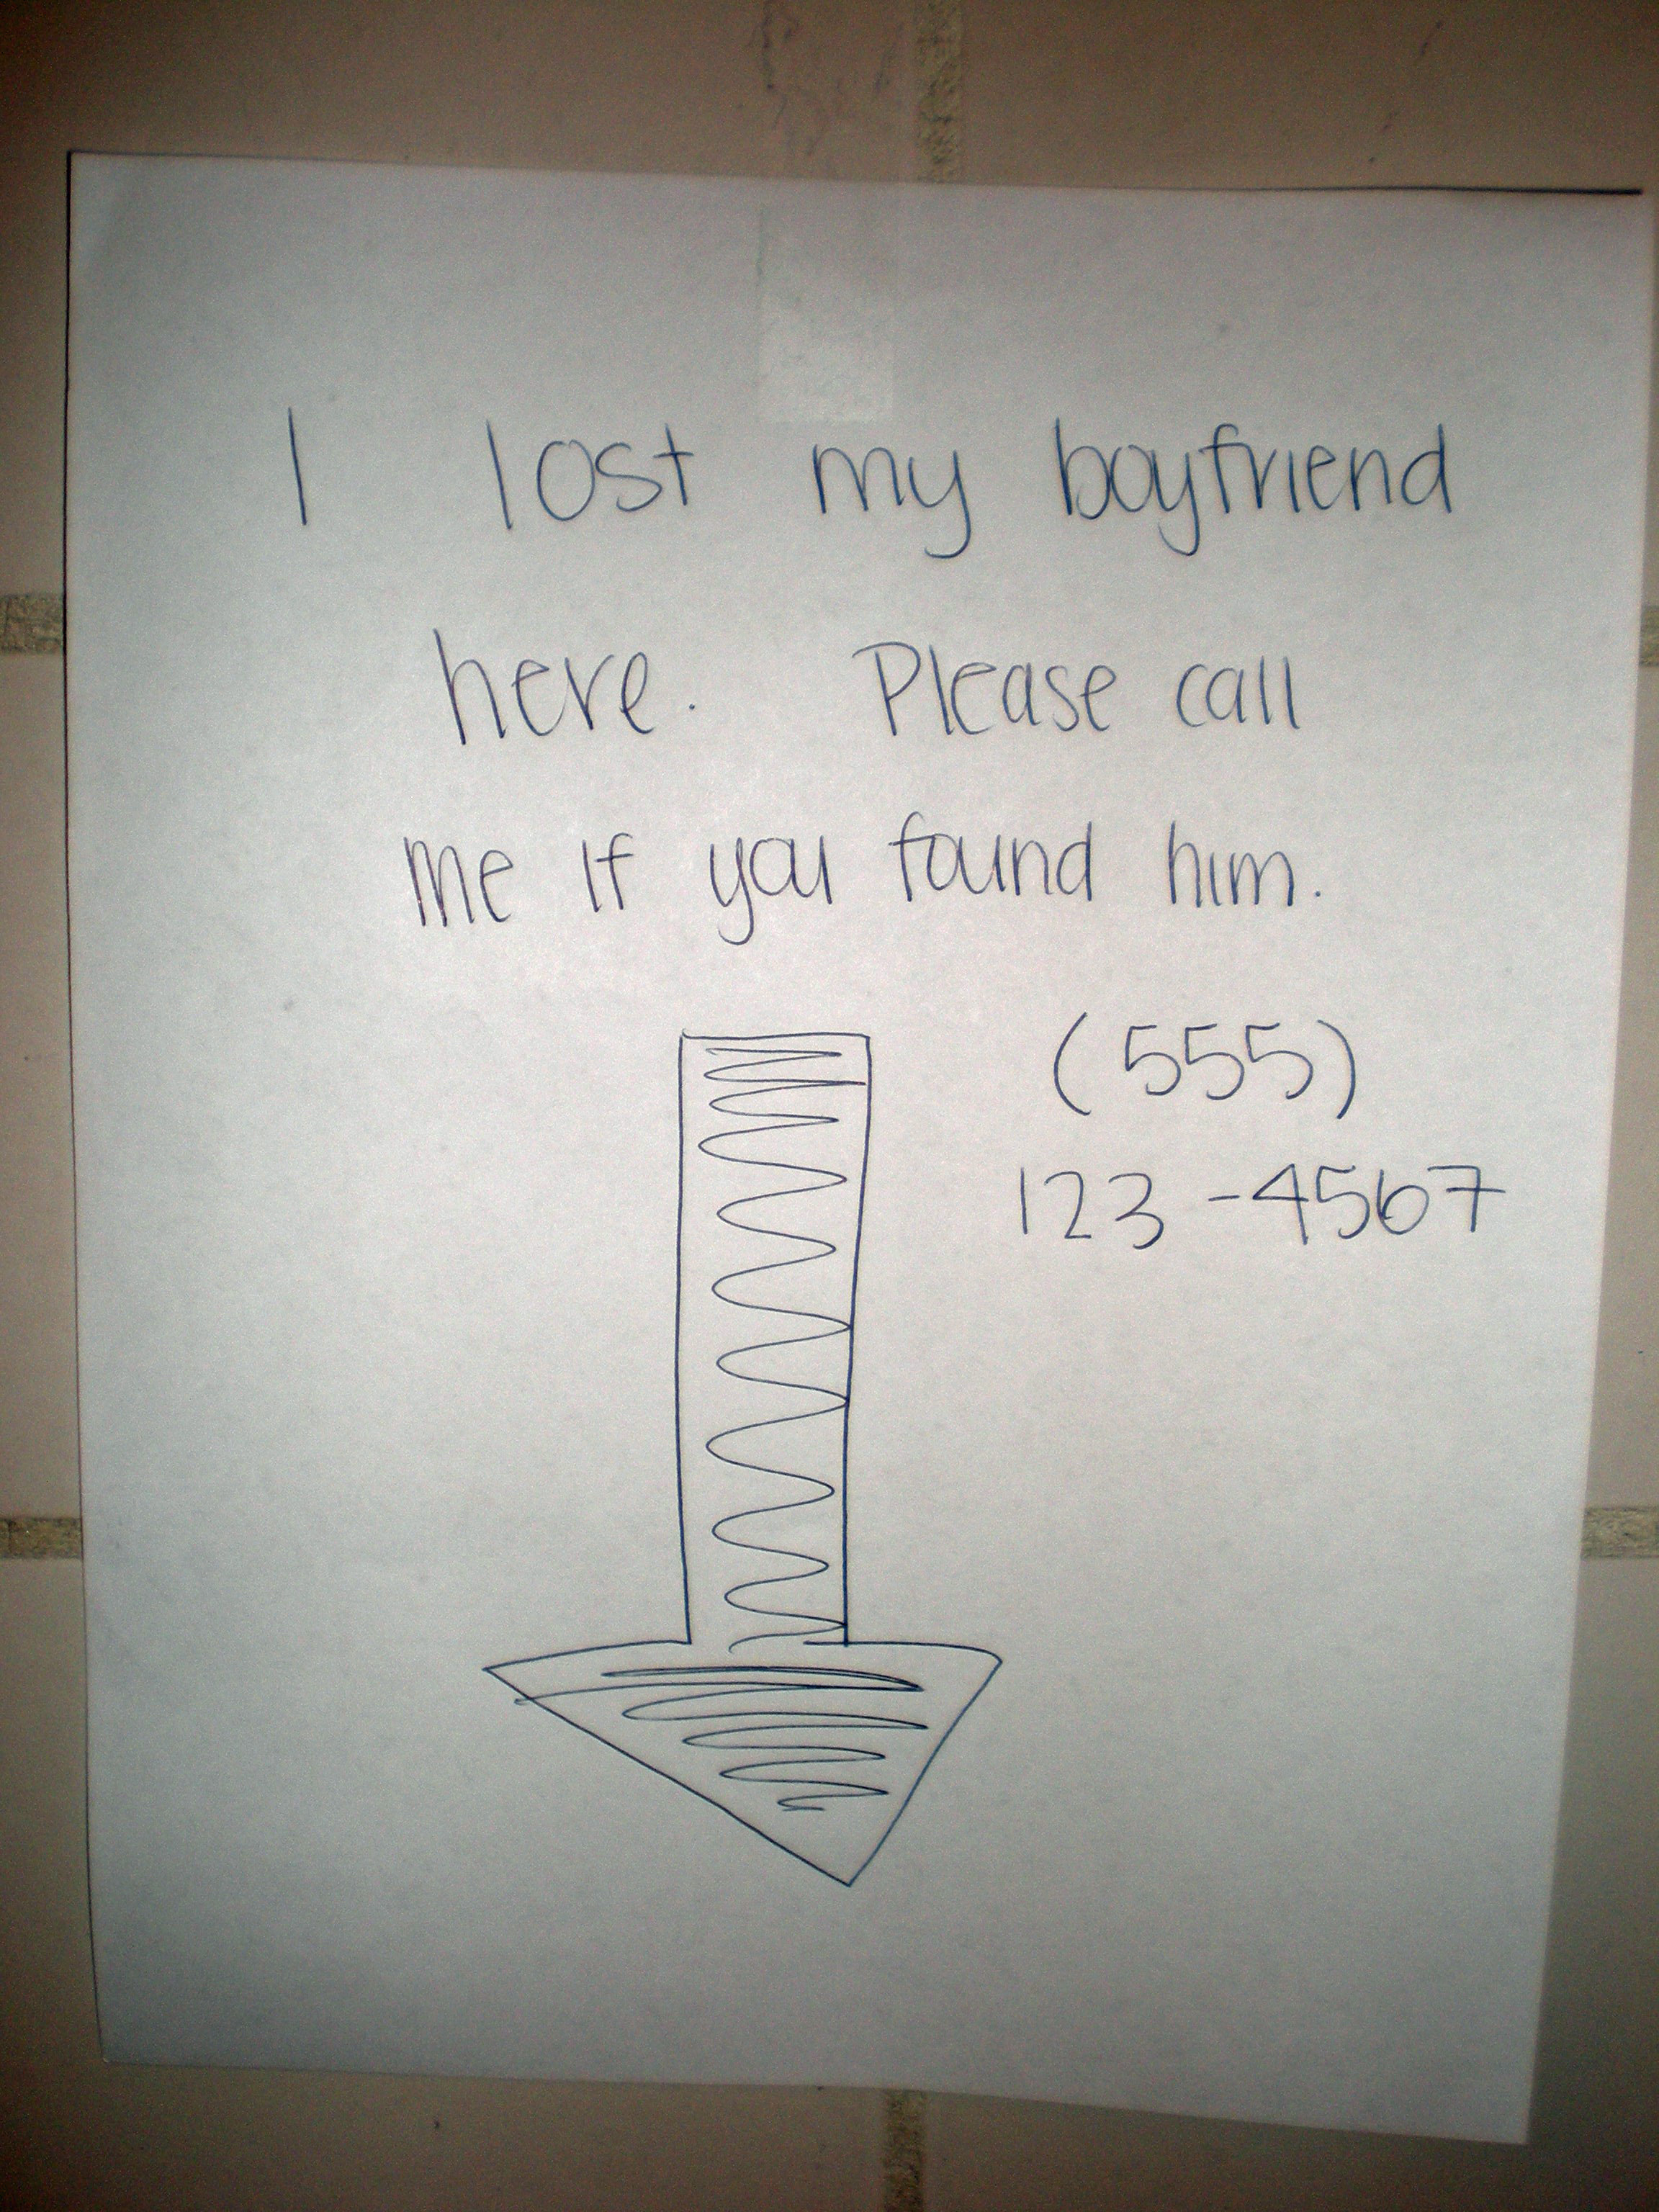 I lost my boyfriend
here. Please call
me if you found him.
(555)
123-4567